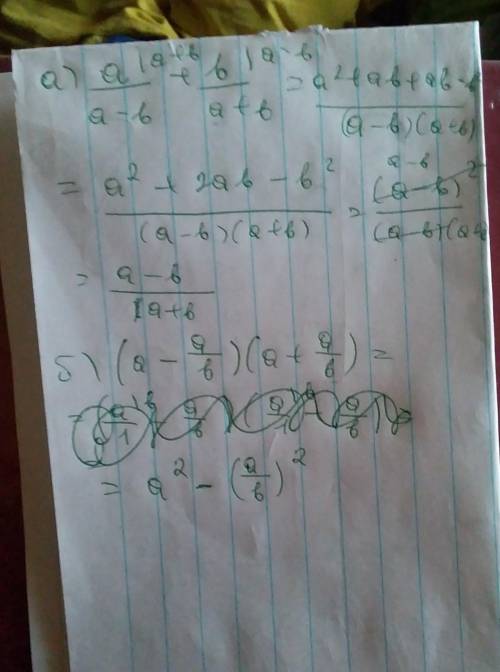 а) a/(a-b) |a+b + b/(a+b) |a-b = (a²+ab+ab-b)/((a-b)(a+b))
= (a² + 2ab - b²)/((a-b)(a+b)) = (a-b)²/((a-b)(a+
a-b
= (a-b)/(a+b)
б) (a - a/b)(a + a/b) =
= a² - (a/b)²